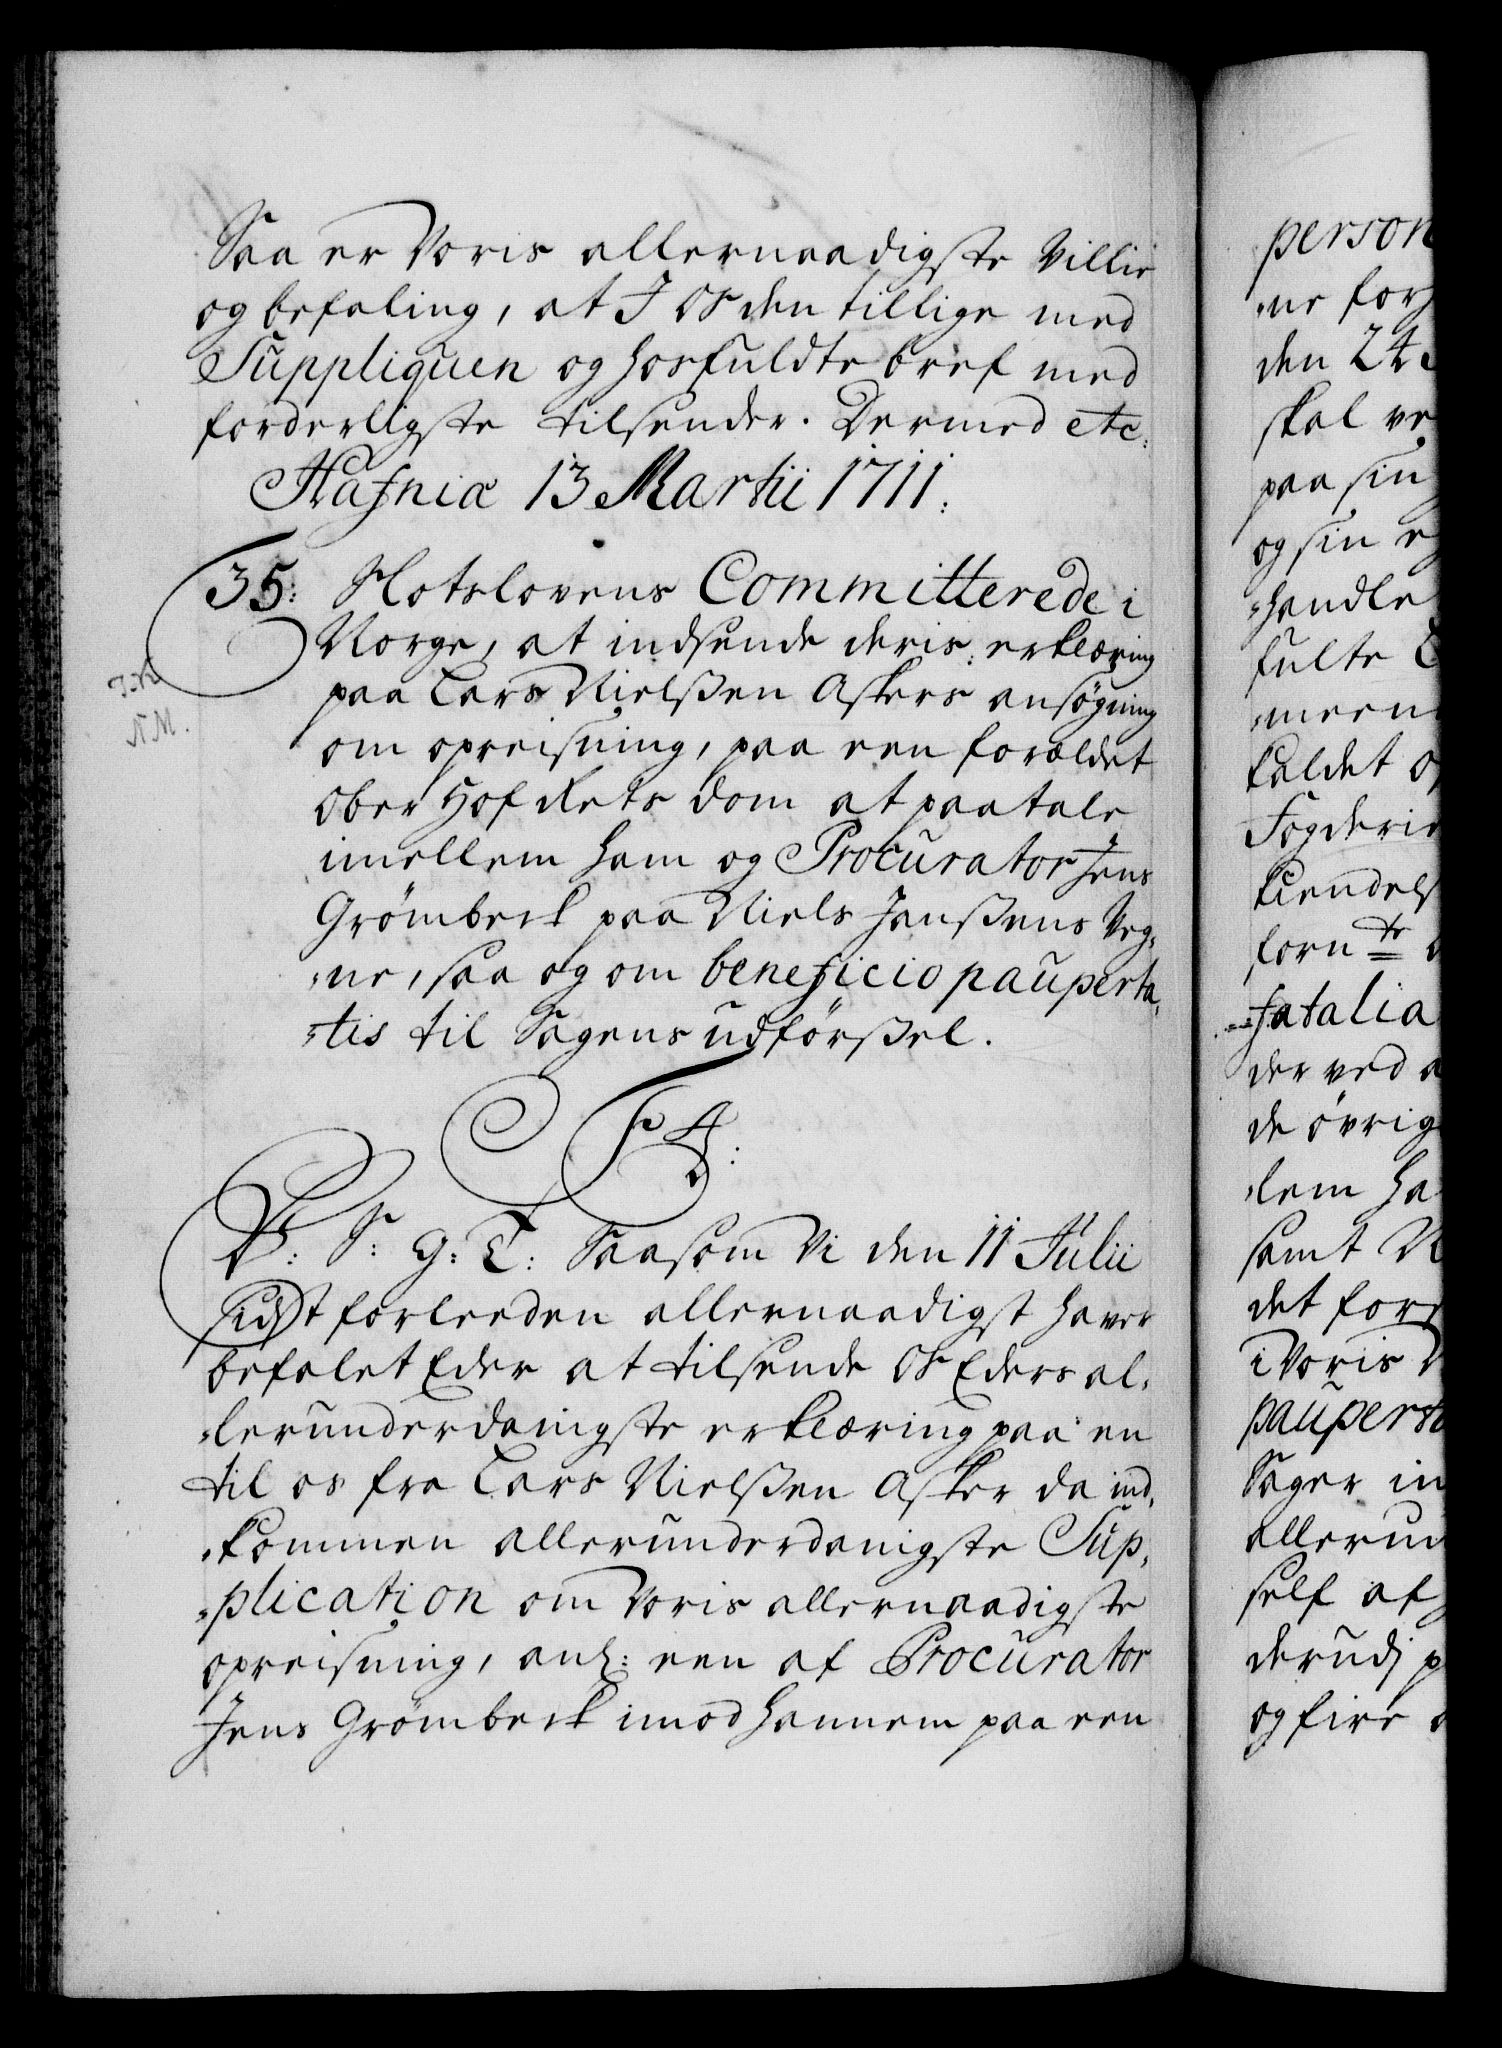 Saa er Voris allernaadigste Villie
og befaling, at I Os den tillige med
Suppliquen og hosfuldte bref med
forderligste tilsender. Dermed etc:
Hafniæ 13 Martii 1711:
35: Slotslovens Committerede i
Norge, at indsende deris erklæring
paa Lars Nielsßen Askers ansøgning
om opreisning, paa een forældet
Ober Hof Rets dom at paatale
imellem ham og Procurator Jens
Grömbeck paa Niels Janßens Veg,
,ne, saa og om beneficio pauperta,
,tis til Sagens udførßel.
F 4:
V: S: G: T: Saasom Vi den 11 Julii
sidst forleeden allernaadigst haver
befalet Eder at tilsende Os Eders al,
,lerunderdanigste erklæring paa en
til os fra Lars Nielsßen Asker da ind,
,kommen allerunderdanigste Sup,
,plication om Voris allernaadigste
opreisning, anl: een af Procurator
Jens Grömbeck imod hannem paa een
person
,ne for
den 24
skal ve
paa sin
og sin e
,handle
fulte
,meen
kaldet o
Fogderie
kiendels
fornte
,fatalia
der ved a
de øvrig
,lem ha
samt N
det for
i Voris
pauperta
Sager in
allerun
self af
derudj p
og fire